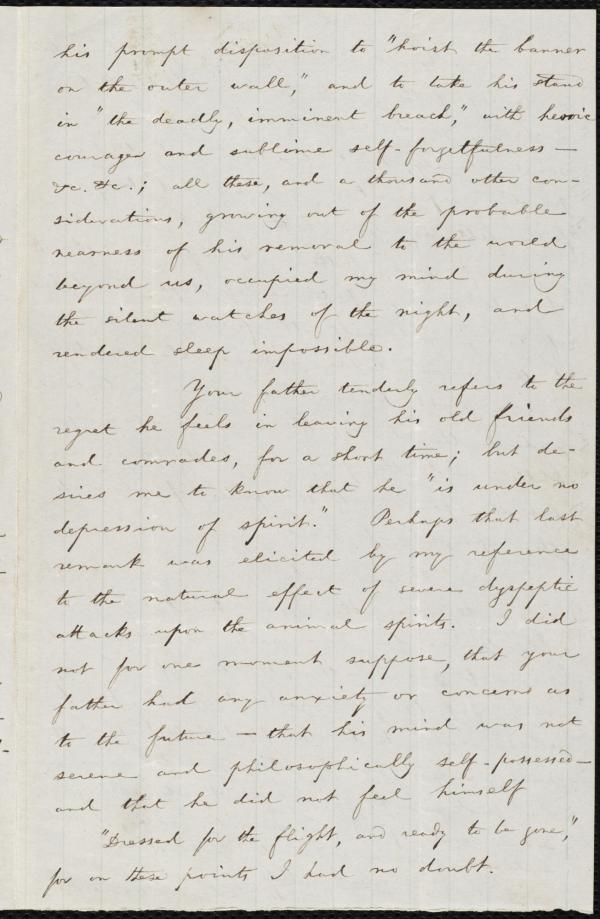 his prompt disposition to "hoist the banner
on the outer wall," and to take his stand
in "the deadly, imminent breach," with heroic
courage and sublime self-forgetfulness —
&c. &c.; all these, and a thousand other con-
siderations, growing out of the probable
nearness of his removal to the world
beyond us, occupied my mind during
the silent watches of the night, and
rendered sleep impossible.
Your father tenderly refers to the
regret he feels in leaving his old friends
and comrades, for a short time; but de-
sires me to know that he "is under no
depression of spirit." Perhaps that last
remark was elicited by my reference
to the natural effect of severe dyspeptic
attacks upon the animal spirits. I did
not for one moment suppose, that your
father had any anxiety or concern as
to the future — that his mind was not
serene and philosophically self-possessed —
and that he did not feel himself
"Dressed for the flight, and ready to be gone,"
for on these points I had no doubt.